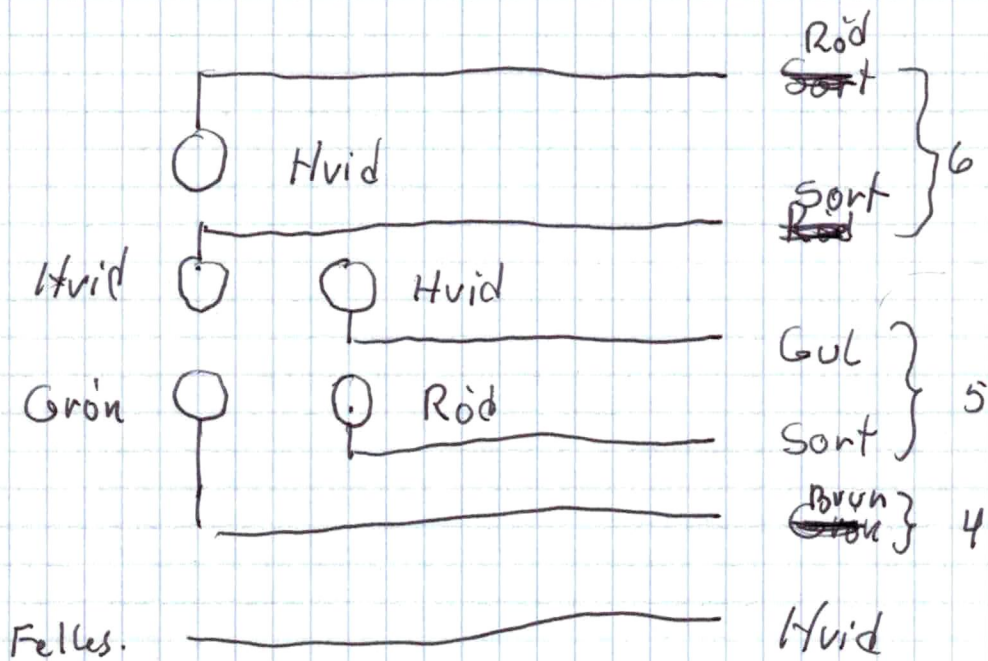 Röd
Sort
6
Hvid
Sort
Röd
Hvid
Hvid
Gul
5
Grön
Röd
Sort
Brun
Grön
4
Felles.
Hvid